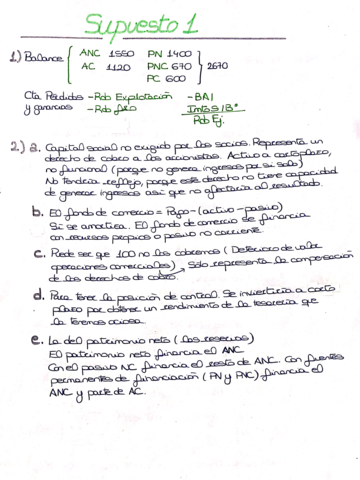 Supuesto 1
1) Balance { ANC 1550 PN 1400 } 2670
AC 1120 PNC 670
PC 600
Cta Pérdidas - Rdo Explotación - BAI
y ganancias - Rdo fro Imtos/Bº
Rdo Ej.
2) a. Capital social no exigido por los socios. Representa un
derecho de cobro a los accionistas. Activo a corto plazo,
no funcional (porque no genera ingresos por si solo)
No tendría reflejo, porque este derecho no tiene capacidad
de generar ingresos asi que no afectaría al resultado.
b. El fondo de comercio = Pago - (activo - pasivo)
Si se amortiza. El fondo de comercio se financia
con recursos propios o pasivo no corriente.
c. Puede ser que 100 no los cobremos (Deterioro de valor
operaciones comerciales), Sólo representa la compensación
de los derechos de cobro.
d. Para tener la posición de control. Se invertiría a corto
plazo por obtener un rendimiento de la tesorería que
la tenemos ociosa.
e. La del patrimonio neto (las reservas)
El patrimonio neto financia el ANC
Con el pasivo NC financia el resto de ANC. Con fuentes
permanentes de financiación (PN y PNC) financia el
ANC y parte de AC.